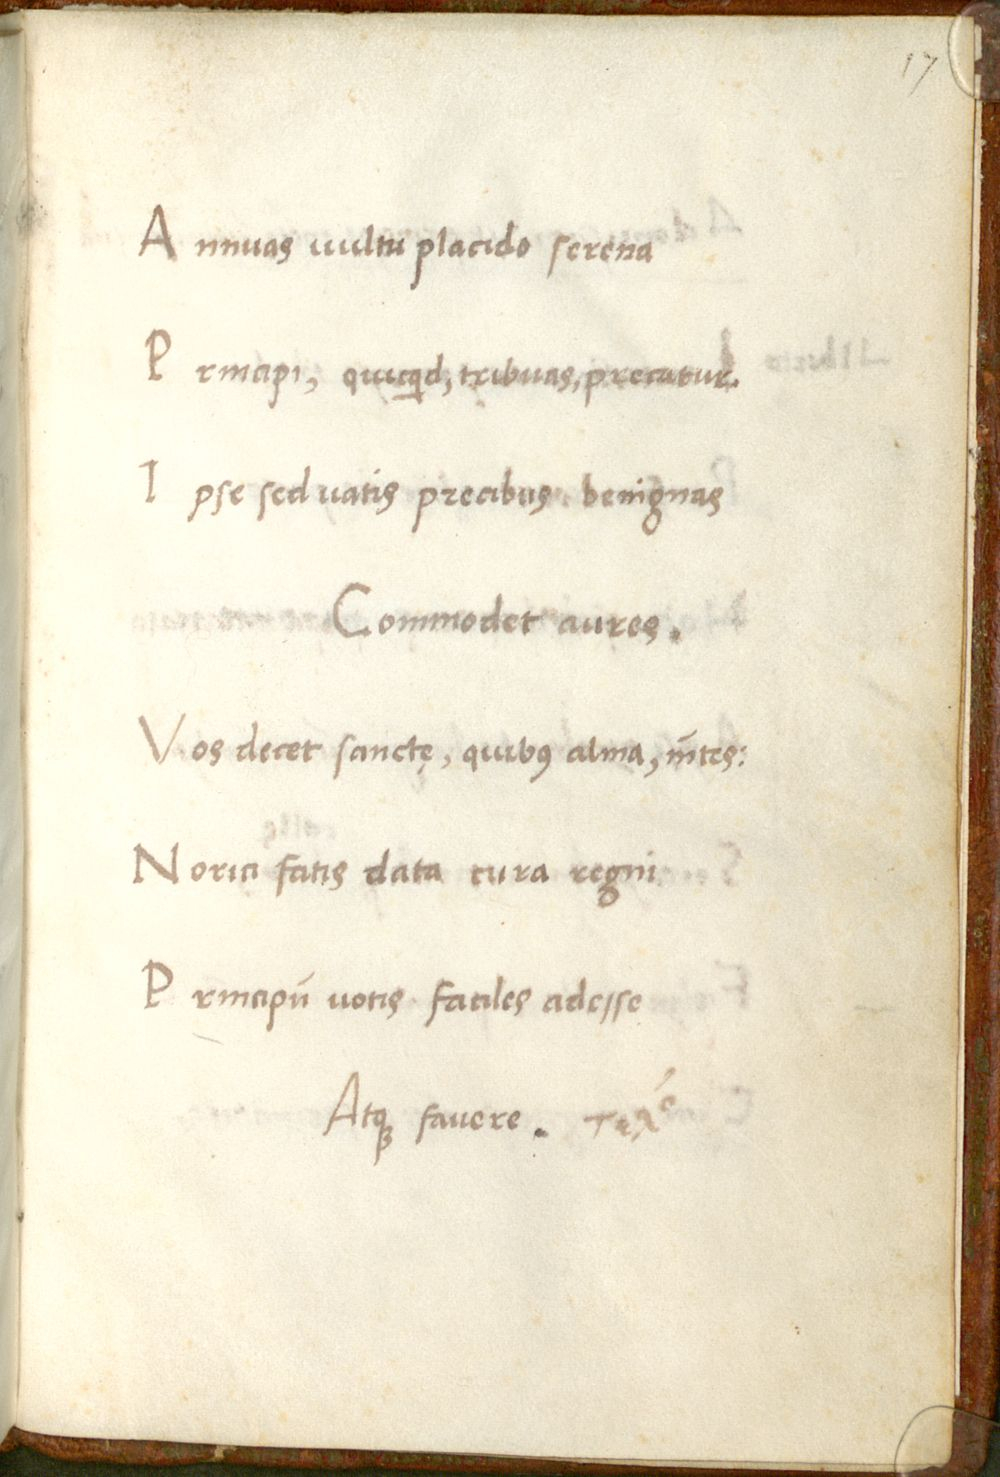 17
Annuas uultu placido serena
Principi, quicq̃d, tribuas, precatur.
Ipse sed uatis precibus benignas
Commodet aures.
Vos decet sanctę, quibꝰ alma, m̃tes:
Norici fatis data cura regni
Principũ uotis faciles adesse
Atqꝫ fauere. τελός